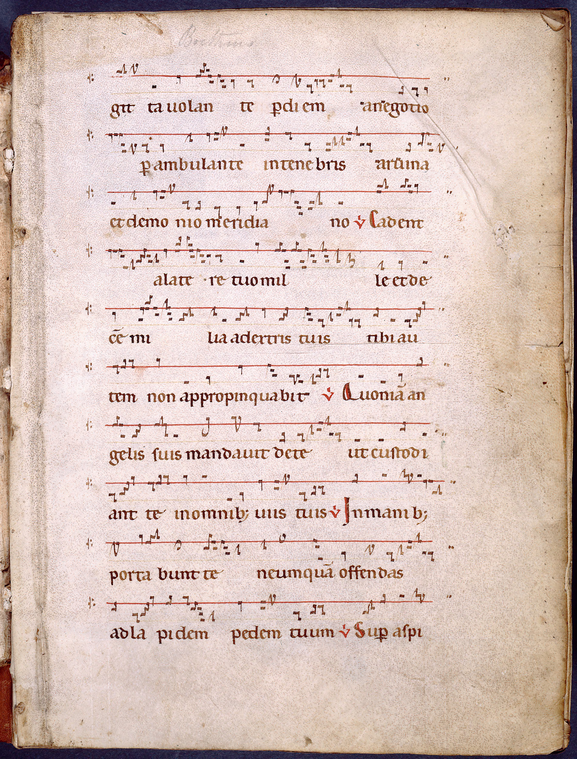 git ta uolan te p̱ diem a negotio
p̱ambulante intenebris aruina
et demo nio meridia no ℣ Cadent
alate re tuo mil le et de
cē mi lia a dextris tuis tibi au
tem non appropinquabit ℣ Quoniā an
gelis suis mandauit dete ut custodi
ant te in omnib; uiis tuis ℣ In mani b;
porta bunt te neumquā offendas
ad la pidem pedem tuum ℣ Sup̱ aspi